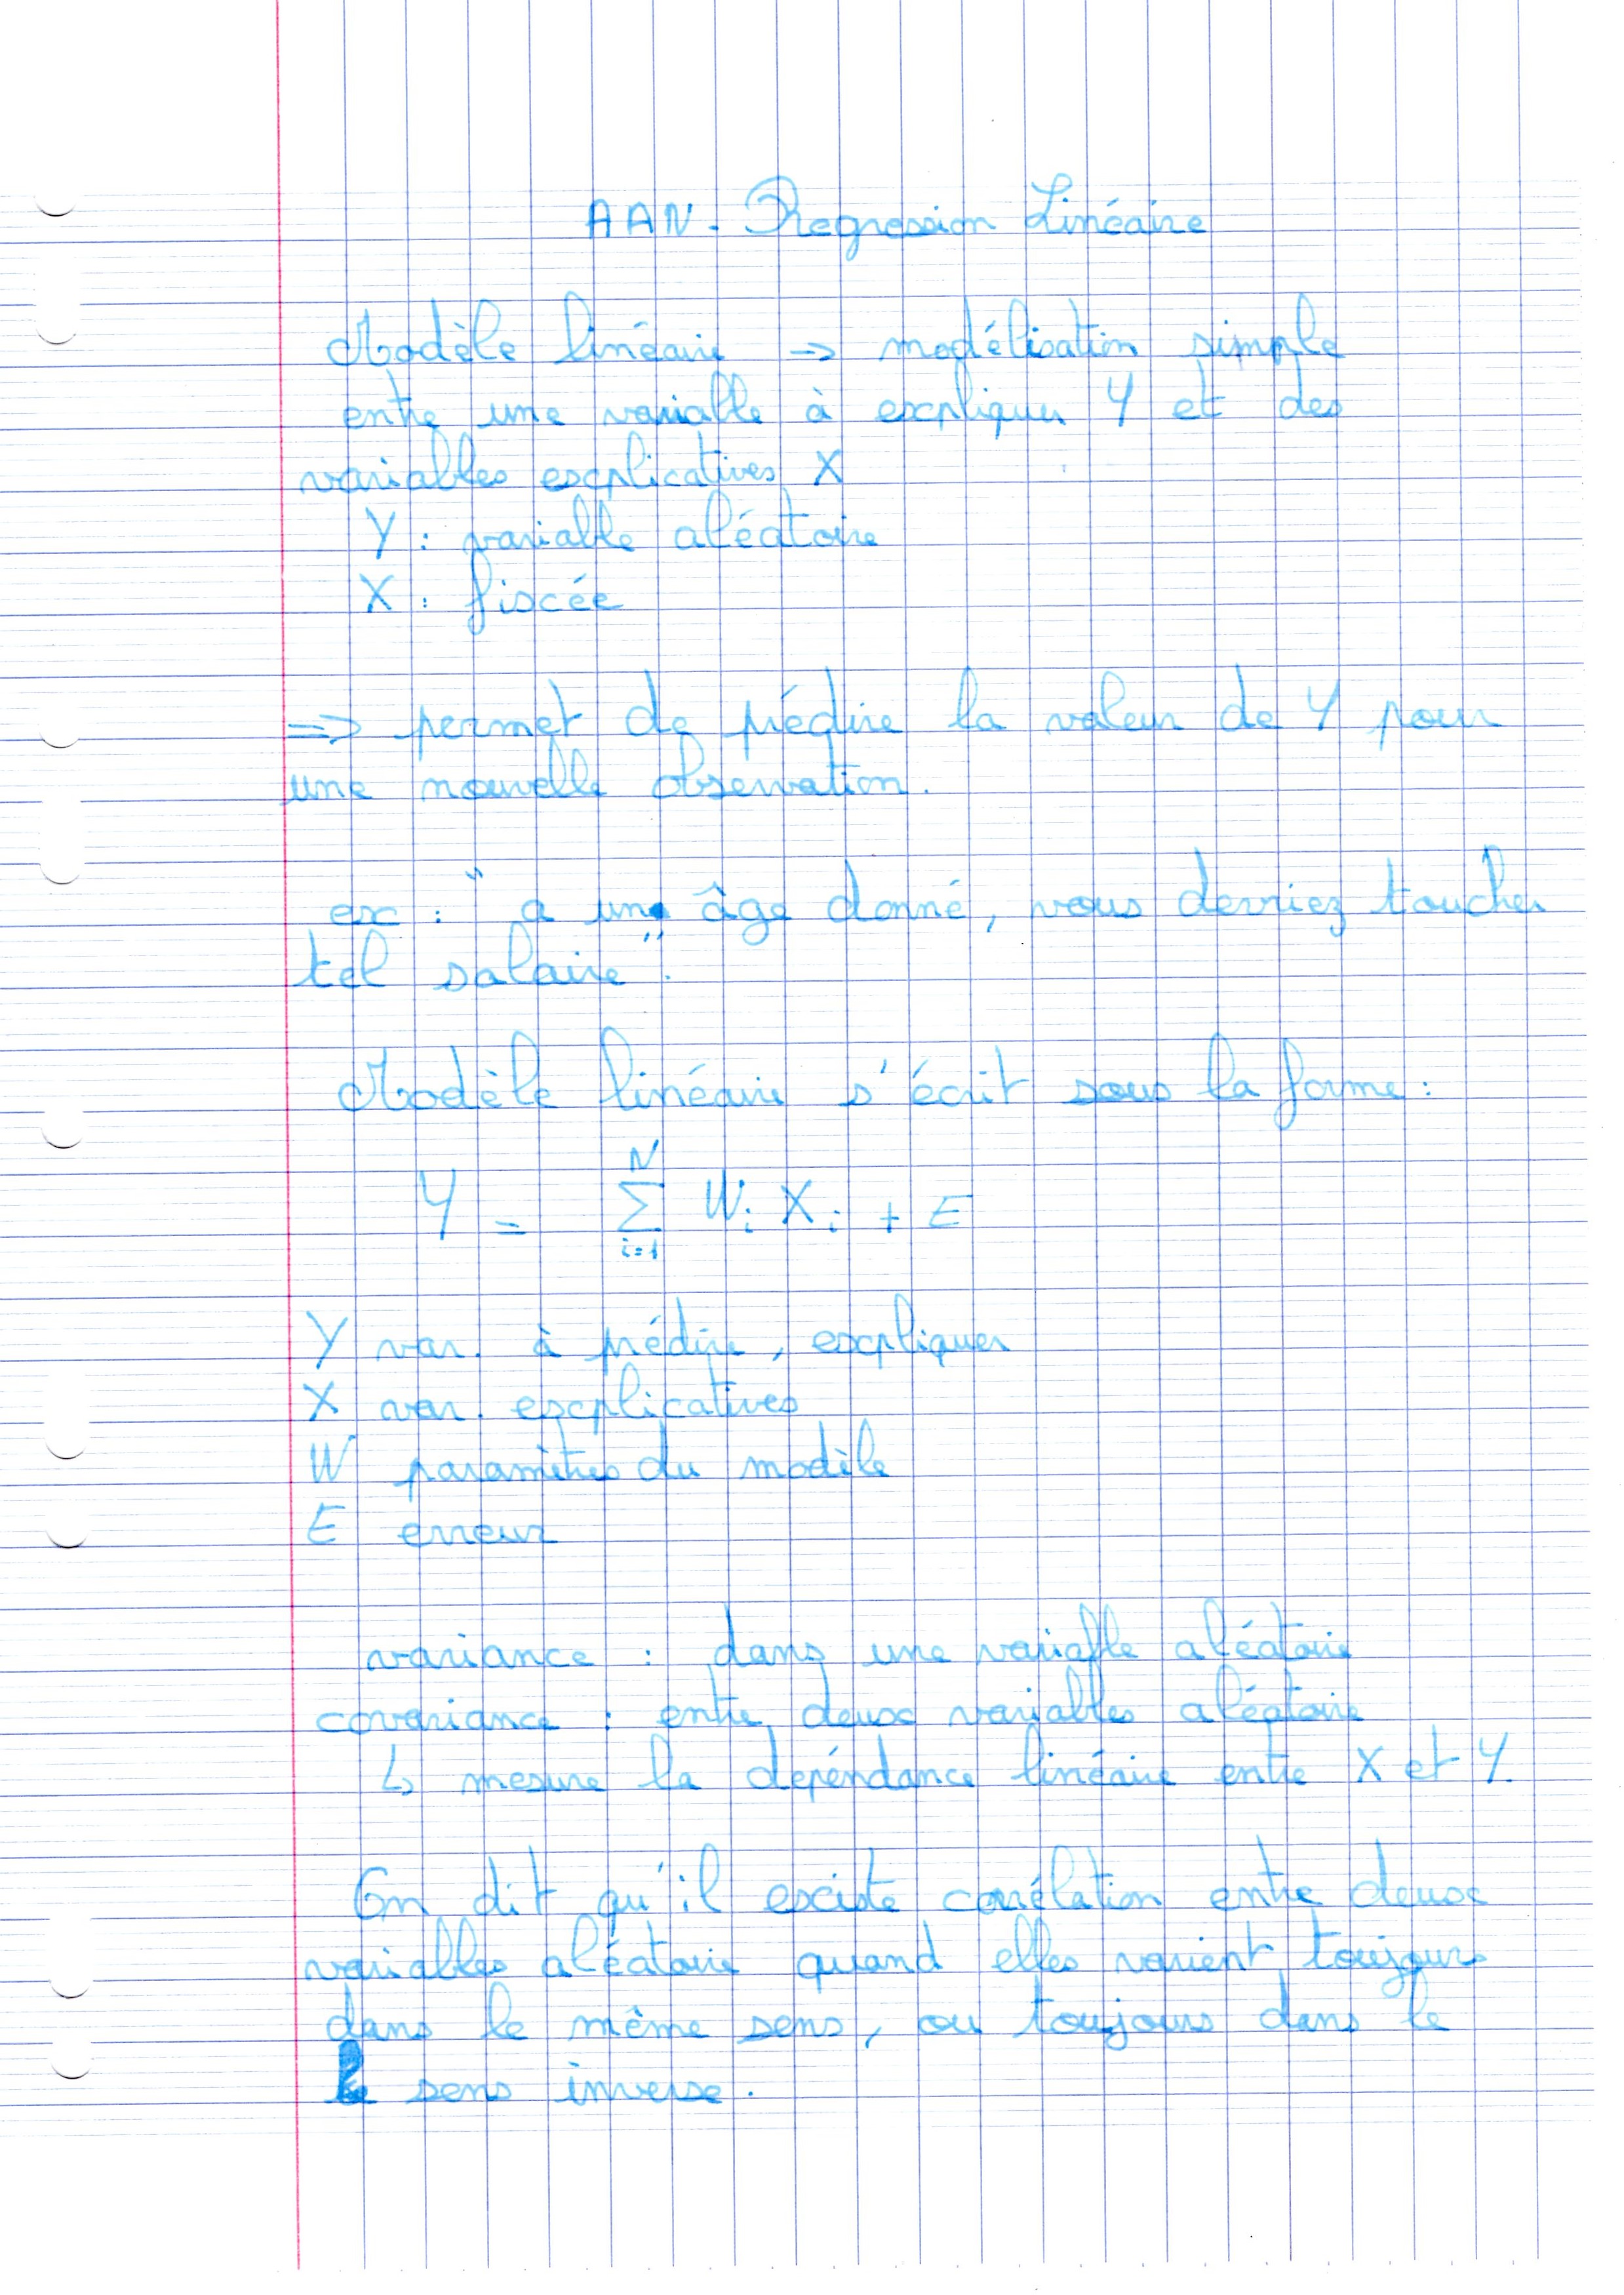 AAN - Regression Linéaire
Modèle linéaire => modélisation simple
entre une variable à expliquer Y et des
variables explicatives X
Y : variable aléatoire
X : fixée
=> permet de prédire la valeur de Y pour
une nouvelle observation.
ex : "a un âge donné, vous devriez toucher
tel salaire".
Modèle linéaire s'écrit sous la forme :
Y = N∑i=1 Wi Xi + E
Y var. à prédire, expliquer
X var. explicatives
W paramètres du modèle
E erreur
variance : dans une variable aléatoire
covariance : entre deux variables aléatoire
↳ mesure la dépéndance linéaire entre X et Y.
On dit qu'il existe corrélation entre deux
variables aléatoire quand elles varient toujours
dans le même sens, ou toujours dans le
sens inverse.